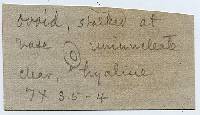 ovoid, stalked at
base uninucleate
clear, hyaline
7 x 3.5-4